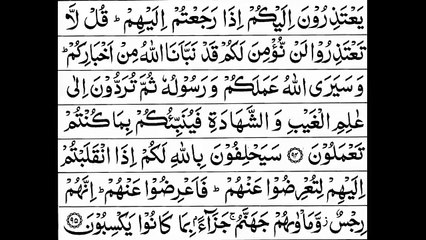 يَعْتَذِرُوْنَ اِلَيْكُمْ اِذَا رَجَعْتُمْ اِلَيْهِمْ ؕ قُلْ لَّا
تَعْتَذِرُوْا لَنْ نُّؤْمِنَ لَكُمْ قَدْ نَبَّاَنَا اللّٰهُ مِنْ اَخْبَارِكُمْ ؕ
وَ سَيَرَى اللّٰهُ عَمَلَكُمْ وَ رَسُوْلُهٗ ثُمَّ تُرَدُّوْنَ اِلٰى
عٰلِمِ الْغَيْبِ وَ الشَّهَادَةِ فَيُنَبِّئُكُمْ بِمَا كُنْتُمْ
تَعْمَلُوْنَ ﴿۹۴﴾ سَيَحْلِفُوْنَ بِاللّٰهِ لَكُمْ اِذَا انْقَلَبْتُمْ
اِلَيْهِمْ لِتُعْرِضُوْا عَنْهُمْ ؕ فَاَعْرِضُوْا عَنْهُمْ ؕ اِنَّهُمْ
رِجْسٌ ؗ وَّ مَاْوٰىهُمْ جَهَنَّمُ ۚ جَزَآءًۢ بِمَا كَانُوْا يَكْسِبُوْنَ ﴿۹۵﴾